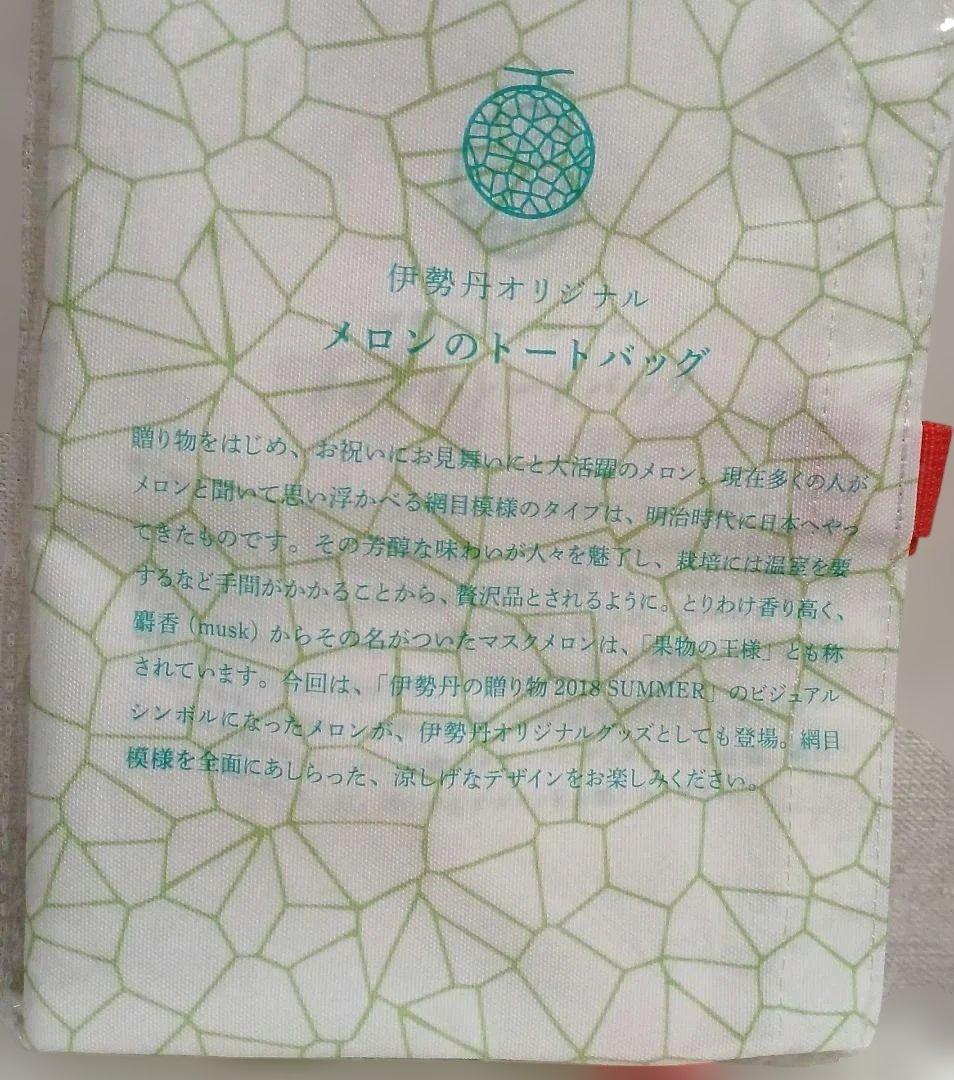 伊勢丹オリジナル
メロンのトートバッグ
贈り物をはじめ、お祝いにお見舞いにと大活躍のメロン。現在多くの人が
メロンと聞いて思い浮かべる網目模様のタイプは、明治時代に日本へやっ
てきたものです。その芳醇な味わいが人々を魅了し、栽培には温室を要
するなど手間がかかることから、贅沢品とされるように。とりわけ香り高く、
麝香（musk）からその名がついたマスクメロンは、「果物の王様」とも称
されています。今回は、「伊勢丹の贈り物 2018 SUMMER」のビジュアル
シンボルになったメロンが、伊勢丹オリジナルグッズとしても登場。網目
模様を全面にあしらった、涼しげなデザインをお楽しみください。